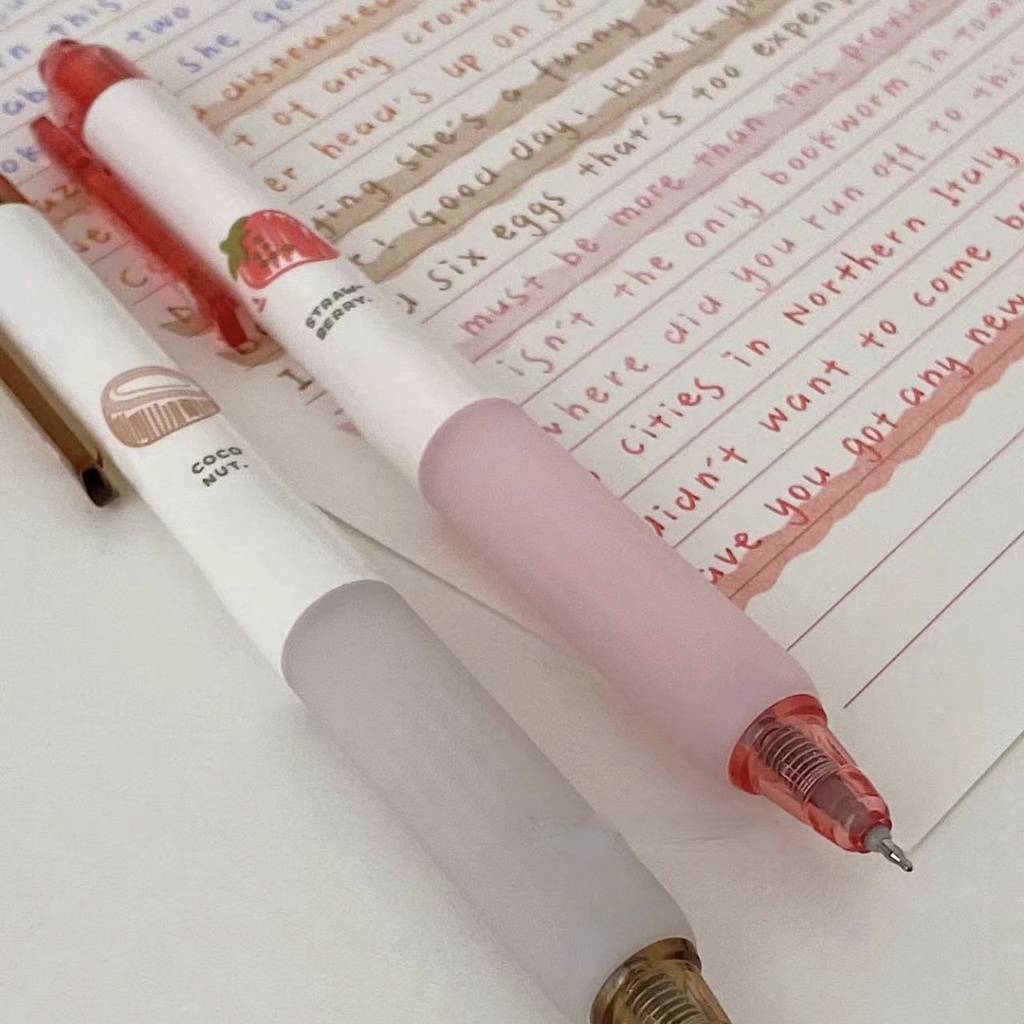 this
two
she
distracted
of any crow
head's up on so
she's a funny
Good day! How is yo
six eggs that's too expen
must be more than this provin
isn't the only bookworm in town
where did you run off to this
cities in Northern Italy
didn't want to come b
ave you got any new
STRAW-
BERRY.
COCO
NUT.